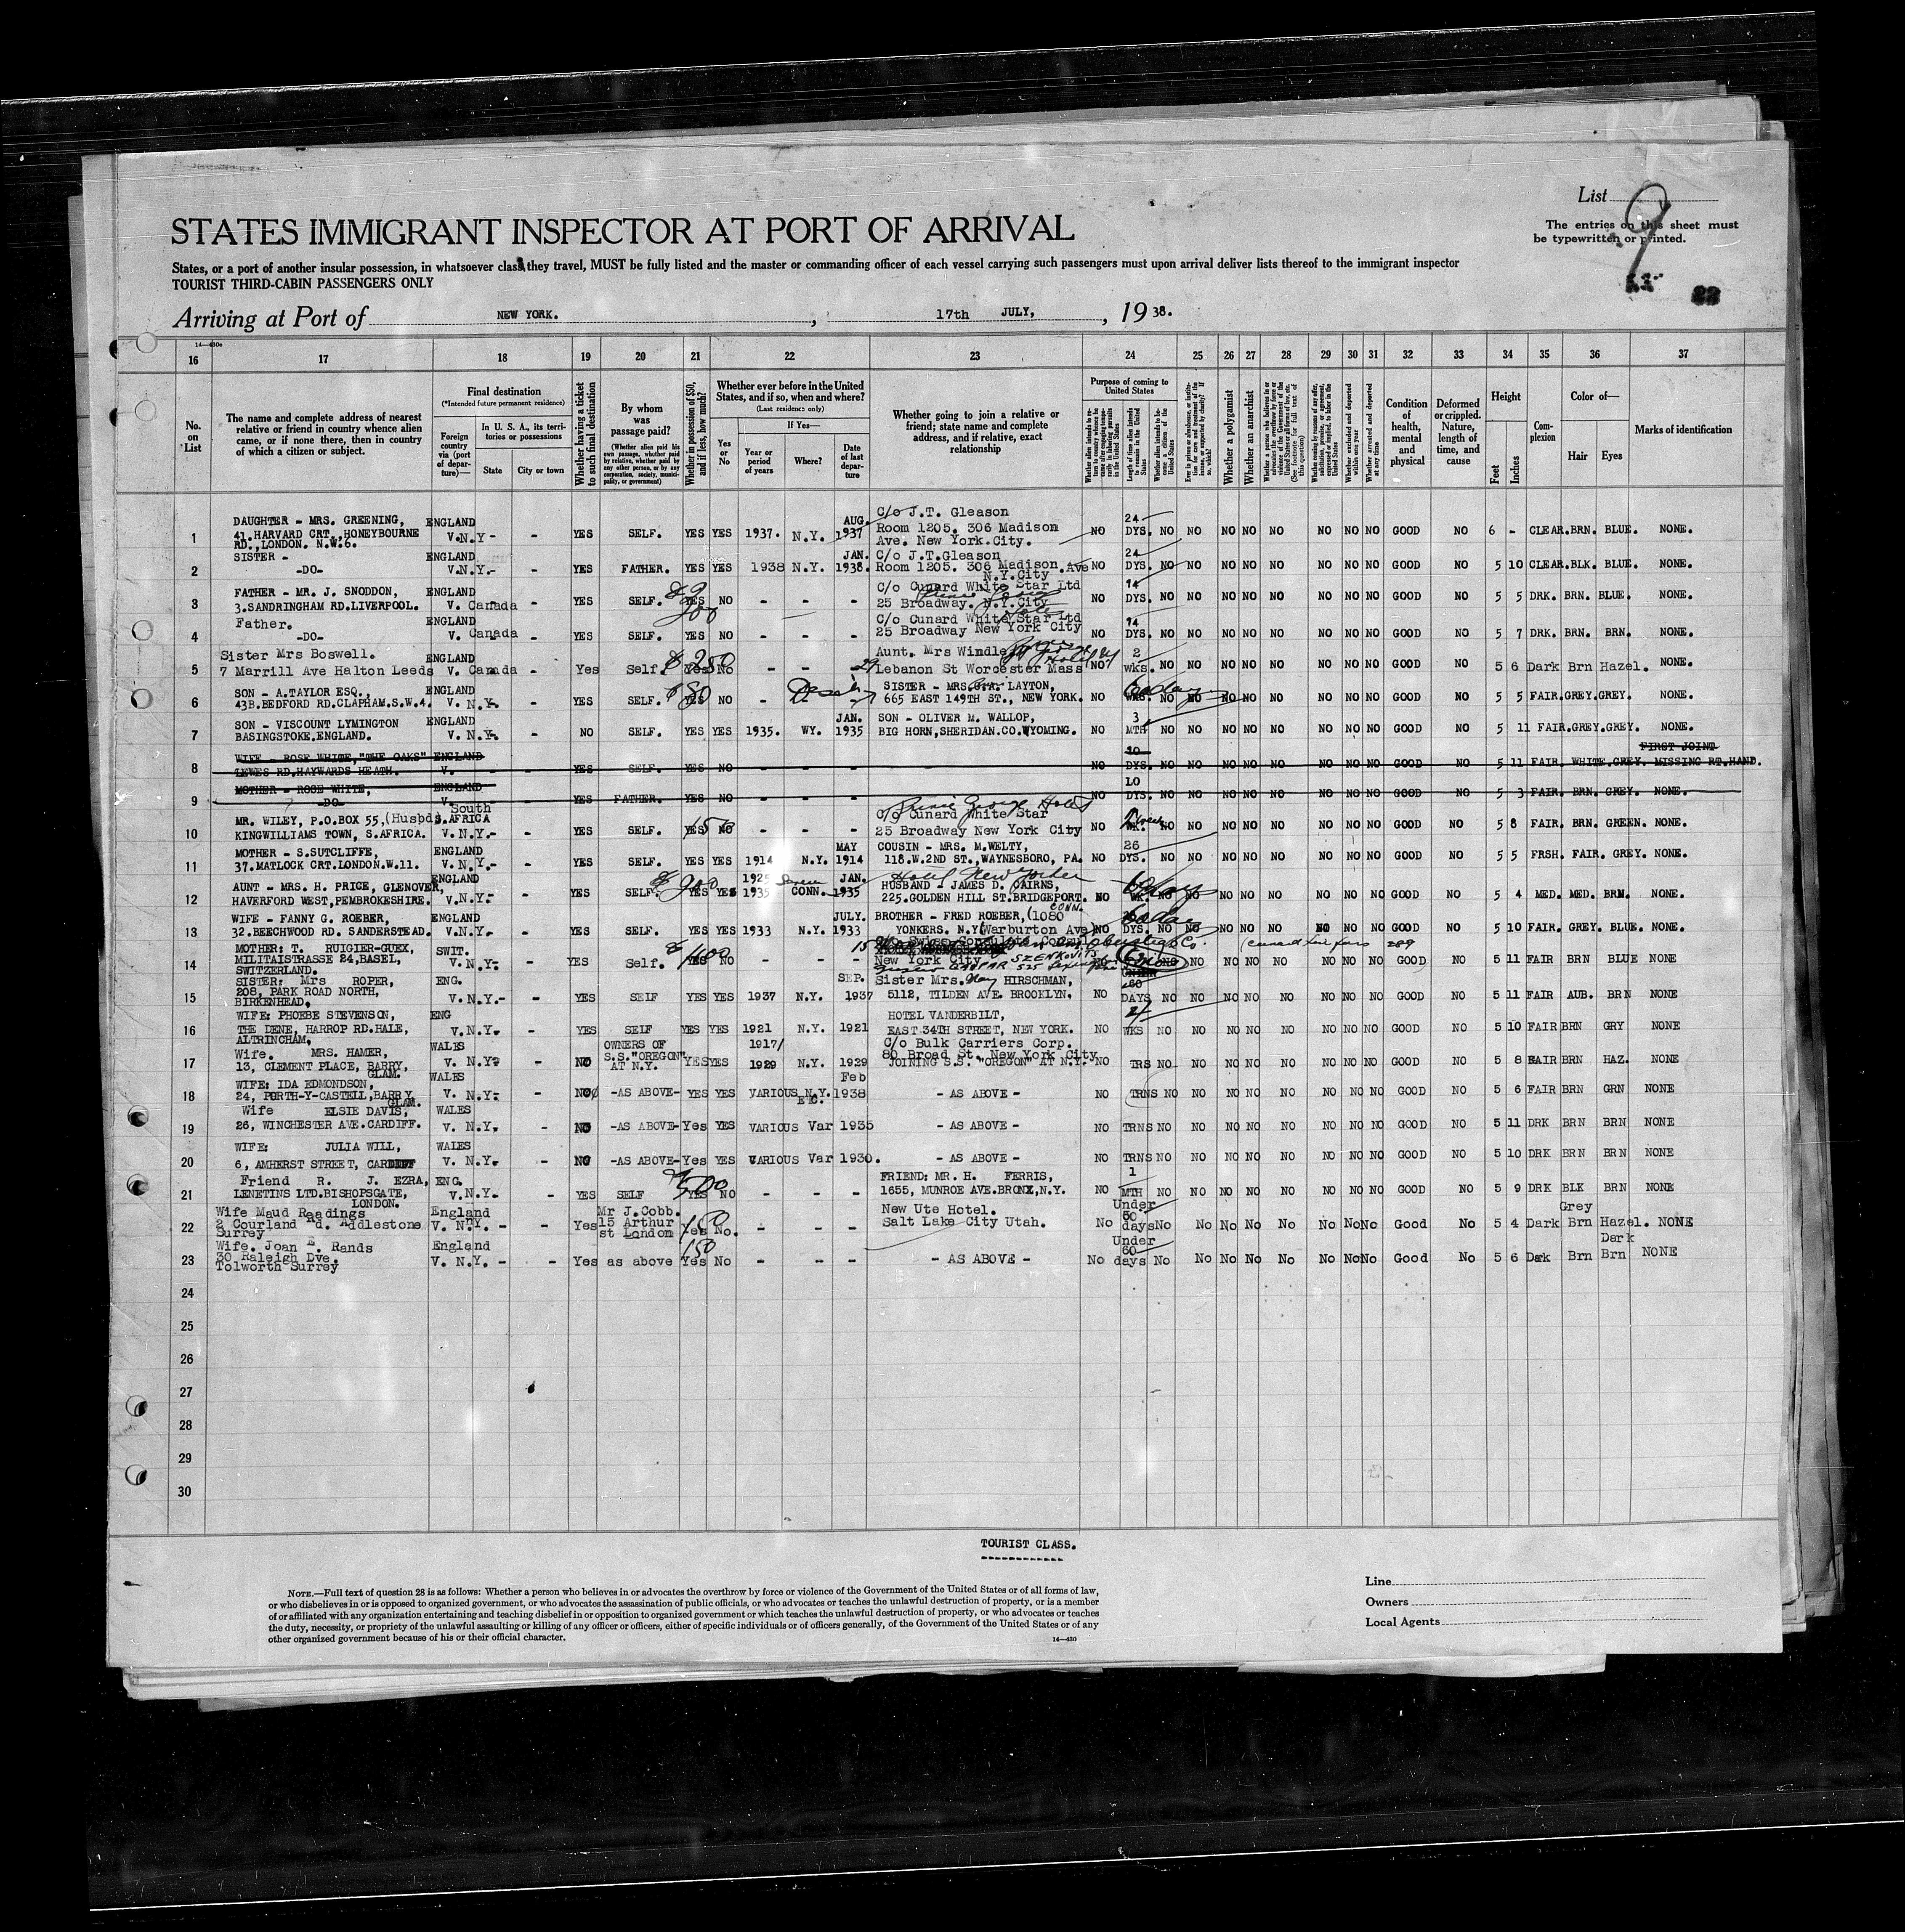 List 9
The entries on this sheet must
be typewritten or printed.
22
STATES IMMIGRANT INSPECTOR AT PORT OF ARRIVAL
States, or a port of another insular possession, in whatsoever class they travel, MUST be fully listed and the master or commanding officer of each vessel carrying such passengers must upon arrival deliver lists thereof to the immigrant inspector
TOURIST THIRD-CABIN PASSENGERS ONLY
Arriving at Port of NEW YORK. , 17th JULY, , 19 38.
14-430c
16 17 18 19 20 21 22 23 24 25 26 27 28 29 30 31 32 33 34 35 36 37
No. on List
The name and complete address of nearest relative or friend in country whence alien came, or if none there, then in country of which a citizen or subject.
Final destination
(*Intended future permanent residence)
Foreign country via (port of departure)—
In U. S. A., its territories or possessions
State
City or town
Whether having a ticket to such final destination
By whom was passage paid?
(Whether alien paid his own passage, whether paid by relative, whether paid by any other person, or by any corporation, society, municipality, or government)
Whether in possession of $50, and if less, how much?
Whether ever before in the United States, and if so, when and where?
(Last residence only)
Yes or No
If Yes—
Year or period of years
Where?
Date of last departure
Whether going to join a relative or friend; state name and complete address, and if relative, exact relationship
Purpose of coming to United States
Length of time alien intends to remain in the United States
Whether alien intends to become a citizen of the United States
Whether a polygamist
Whether an anarchist
Whether excluded and deported within one year
Whether arrested and deported at any time
Condition of health, mental and physical
Deformed or crippled. Nature, length of time, and cause
Height
Feet
Inches
Complexion
Color of—
Hair
Eyes
Marks of identification
DAUGHTER - MRS. GREENING, ENGLAND AUG. C/o J.T. Gleason 24
1 41.HARVARD CRT.,HONEYBOURNE V.N.Y - - YES SELF. YES YES 1937. N.Y. 1937 Room 1205. 306 Madison NO DYS. NO NO NO NO NO NO NO NO GOOD NO 6 - CLEAR.BRN. BLUE. NONE.
RD.,LONDON. N.W.6. Ave. New York.City.
SISTER - ENGLAND JAN. C/o J.T.Gleason 24
2 -DO- V.N.Y.- - YES FATHER. YES YES 1938 N.Y. 1938. Room 1205. 306 Madison Ave NO DYS. NO NO NO NO NO NO NO NO GOOD NO 5 10 CLEAR.BLK. BLUE. NONE.
N.Y.City
FATHER - MR. J. SNODDON, ENGLAND C/o Cunard White Star Ltd 14
3 3.SANDRINGHAM RD.LIVERPOOL. V. Canada - YES SELF. YES NO - - - 25 Broadway. N.Y.City NO DYS. NO NO NO NO NO NO NO NO GOOD NO 5 5 DRK. BRN. BLUE. NONE.
Father. ENGLAND C/o Cunard White Star Ltd 14
4 -DO- V. Canada - YES SELF. YES NO - - - 25 Broadway New York City NO DYS. NO NO NO NO NO NO NO NO GOOD NO 5 7 DRK. BRN. BRN. NONE.
Sister Mrs Boswell. ENGLAND $250 Aunt. Mrs Windle 2
5 7 Marrill Ave Halton Leeds V. Canada - Yes Self. Yes No - - 29 Lebanon St Worcester Mass NO wks. NO NO NO NO NO NO NO NO GOOD NO 5 6 Dark Brn Hazel. NONE.
SON - A.TAYLOR ESQ., ENGLAND $80 SISTER - MRS. LAYTON, 60 days
6 43B.BEDFORD RD.CLAPHAM.S.W.4. V. N.Y. - YES SELF. YES NO - - 665 EAST 149TH ST., NEW YORK. NO WKS. NO NO NO NO NO NO NO NO GOOD NO 5 5 FAIR.GREY.GREY. NONE.
SON - VISCOUNT LYMINGTON ENGLAND JAN. SON - OLIVER M. WALLOP, 3
7 BASINGSTOKE.ENGLAND. V. N.Y. - NO SELF. YES YES 1935. WY. 1935 BIG HORN,SHERIDAN.CO.WYOMING. NO MTH NO NO NO NO NO NO NO NO GOOD NO 5 11 FAIR.GREY.GREY. NONE.
WIFE - ROSE WHITE,"THE OAKS" ENGLAND 10 FIRST JOINT
8 LEWES RD,HAYWARDS HEATH. V. YES SELF. YES NO - - - NO DYS. NO NO NO NO NO NO NO NO GOOD NO 5 11 FAIR. WHITE.GREY. MISSING RT.HAND.
MOTHER - ROSE WHITE, ENGLAND 10
9 -DO- V. YES FATHER. YES NO - - - NO DYS. NO NO NO NO NO NO NO NO GOOD NO 5 3 FAIR. BRN. GREY. NONE.
MR. WILEY, P.O.BOX 55,(Husbd) South S.AFRICA 150 Prince George Hotel C/o Cunard White Star
10 KINGWILLIAMS TOWN, S.AFRICA. V.N.Y.- - YES SELF. YES NO - - - 25 Broadway New York City NO WK. NO NO NO NO NO NO NO NO GOOD NO 5 8 FAIR. BRN. GREEN. NONE.
MOTHER - S.SUTCLIFFE, ENGLAND MAY COUSIN - MRS. M.WELTY, 26
11 37.MATLOCK CRT.LONDON.W.11. V.N.Y.- - YES SELF. YES YES 1914 N.Y. 1914 118.W.2ND ST.,WAYNESBORO, PA. NO DYS. NO NO NO NO NO NO NO NO GOOD NO 5 5 FRSH. FAIR. GREY. NONE.
AUNT - MRS. H. PRICE, GLENOVER, ENGLAND 1925 JAN. Hotel New Yorker HUSBAND - JAMES D. CAIRNS, 60 days
12 HAVERFORD WEST,PEMBROKESHIRE. V.N.Y.- - YES SELF. YES YES 1935 CONN. 1935 225.GOLDEN HILL ST.BRIDGEPORT. CONN. NO WK. NO NO NO NO NO NO NO NO GOOD NO 5 4 MED. MED. BRN. NONE.
WIFE - FANNY G. ROEBER, ENGLAND JULY. BROTHER - FRED ROEBER,(1080 60 days
13 32.BEECHWOOD RD. SANDERSTEAD. V.N.Y.- - YES SELF. YES YES 1933 N.Y. 1933 YONKERS. N.Y. Warburton Ave) NO DYS. NO NO NO NO NO NO NO NO GOOD NO 5 10 FAIR. GREY. BLUE. NONE.
MOTHER: T. RUIGIER-GUEX, SWIT. $400
14 MILITAISTRASSE 24,BASEL, V.N.Y.- - YES Self. YES NO - - - New York City NO NO NO NO NO NO NO NO GOOD NO 5 11 FAIR BRN BLUE NONE
SWITZERLAND. GASPAR SZENKOVITS 535
SISTER: Mrs ROPER, ENG. SEP. Sister Mrs. May HIRSCHMAN, UNDER 60
15 208, PARK ROAD NORTH, V.N.Y.- - YES SELF YES YES 1937 N.Y. 1937 5112, TILDEN AVE. BROOKLYN. NO DAYS NO NO NO NO NO NO NO NO GOOD NO 5 11 FAIR AUB. BRN NONE
BIRKENHEAD,
WIFE: PHOEBE STEVENSON, ENG HOTEL VANDERBILT, 2
16 THE DENE, HARROP RD.HALE, V.N.Y. - YES SELF YES YES 1921 N.Y. 1921 EAST 34TH STREET, NEW YORK. NO WKS NO NO NO NO NO NO NO NO GOOD NO 5 10 FAIR BRN GRY NONE
ALTRINCHAM,
Wife. MRS. HAMER, WALES OWNERS OF 1917/ C/o Bulk Carriers Corp. 80 Broad St. New York City
17 13, CLEMENT PLACE, BARRY, GLAM. V. N.Y. - NO S.S."OREGON" AT N.Y. YES YES 1929 N.Y. 1929 JOINING S.S. "OREGON" AT N.Y. NO TRS NO NO NO NO NO NO NO NO GOOD NO 5 8 FAIR BRN HAZ. NONE
WIFE: IDA EDMONDSON, WALES Feb
18 24, PORTH-Y-CASTELL,BARRY GLAM. V. N.Y. - NO -AS ABOVE- YES YES VARIOUS N.Y. ETC. 1938 - AS ABOVE - NO TRNS NO NO NO NO NO NO NO NO GOOD NO 5 6 FAIR BRN GRN NONE
Wife ELSIE DAVIS, WALES
19 26, WINCHESTER AVE.CARDIFF. V. N.Y. - NO -AS ABOVE- Yes YES VARIOUS Var 1935 - AS ABOVE - NO TRNS NO NO NO NO NO NO NO NO GOOD NO 5 11 DRK BRN BRN NONE
WIFE: JULIA WILL, WALES
20 6, AMHERST STREET, CARDIFF V. N.Y. - NO -AS ABOVE- Yes YES VARIOUS Var 1930. - AS ABOVE - NO TRNS NO NO NO NO NO NO NO NO GOOD NO 5 10 DRK BRN BRN NONE
Friend R. J. EZRA, ENG. $500 FRIEND: MR. H. FERRIS, 1
21 LENETINS LTD.BISHOPSGATE, LONDON. V.N.Y.- - YES SELF YES NO - - - 1655, MUNROE AVE.BRONX,N.Y. NO MTH NO NO NO NO NO NO NO NO GOOD NO 5 9 DRK BLK BRN NONE
Wife Maud Readings England Mr J.Cobb. 150 New Ute Hotel. Under 60 Grey
22 2 Courland Rd. Addlestone V. N.Y. - - Yes 15 Arthur st London Yes No. - - - Salt Lake City Utah. No days No No No No No No No No Good No 5 4 Dark Brn Hazel. NONE
Surrey
Wife. Joan E. Rands England 150 Under 60 Dark
23 30 Raleigh Dve. V. N.Y. - - Yes as above Yes No - - - - AS ABOVE - No days No No No No No No No No Good No 5 6 Dark Brn Brn NONE
Tolworth Surrey
24
25
26
27
28
29
30
TOURIST CLASS.
NOTE.—Full text of question 28 is as follows: Whether a person who believes in or advocates the overthrow by force or violence of the Government of the United States or of all forms of law,
or who disbelieves in or is opposed to organized government, or who advocates the assassination of public officials, or who advocates or teaches the unlawful destruction of property, or is a member
of or affiliated with any organization entertaining and teaching disbelief in or opposition to organized government or which teaches the unlawful destruction of property, or who advocates or teaches
the duty, necessity, or propriety of the unlawful assaulting or killing of any officer or officers, either of specific individuals or of officers generally, of the Government of the United States or of any
other organized government because of his or their official character.
14-430
Line
Owners
Local Agents